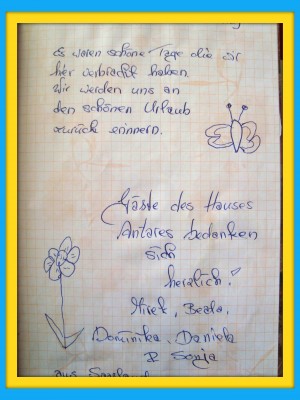 es waren schöne Tage die sir
hier verbracht haben.
Wir werden uns an
den schönen Urlaub
zurück erinnern.
Gäste des Hauses
Antares bedanken
sich
herzlich!
Mirek, Beata,
Dominika, Daniela
& Sonja
aus